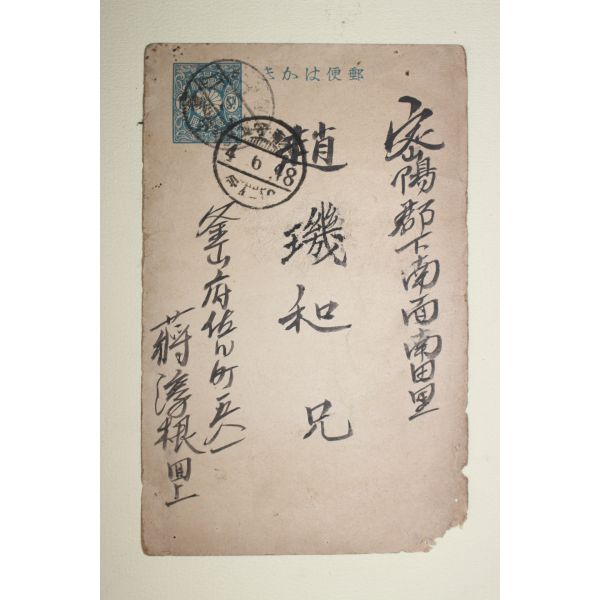 郵便はがき
密陽郡下南面南田里
趙璣和兄
釜山府佐川町五八一
蔣淳根回上
6.18